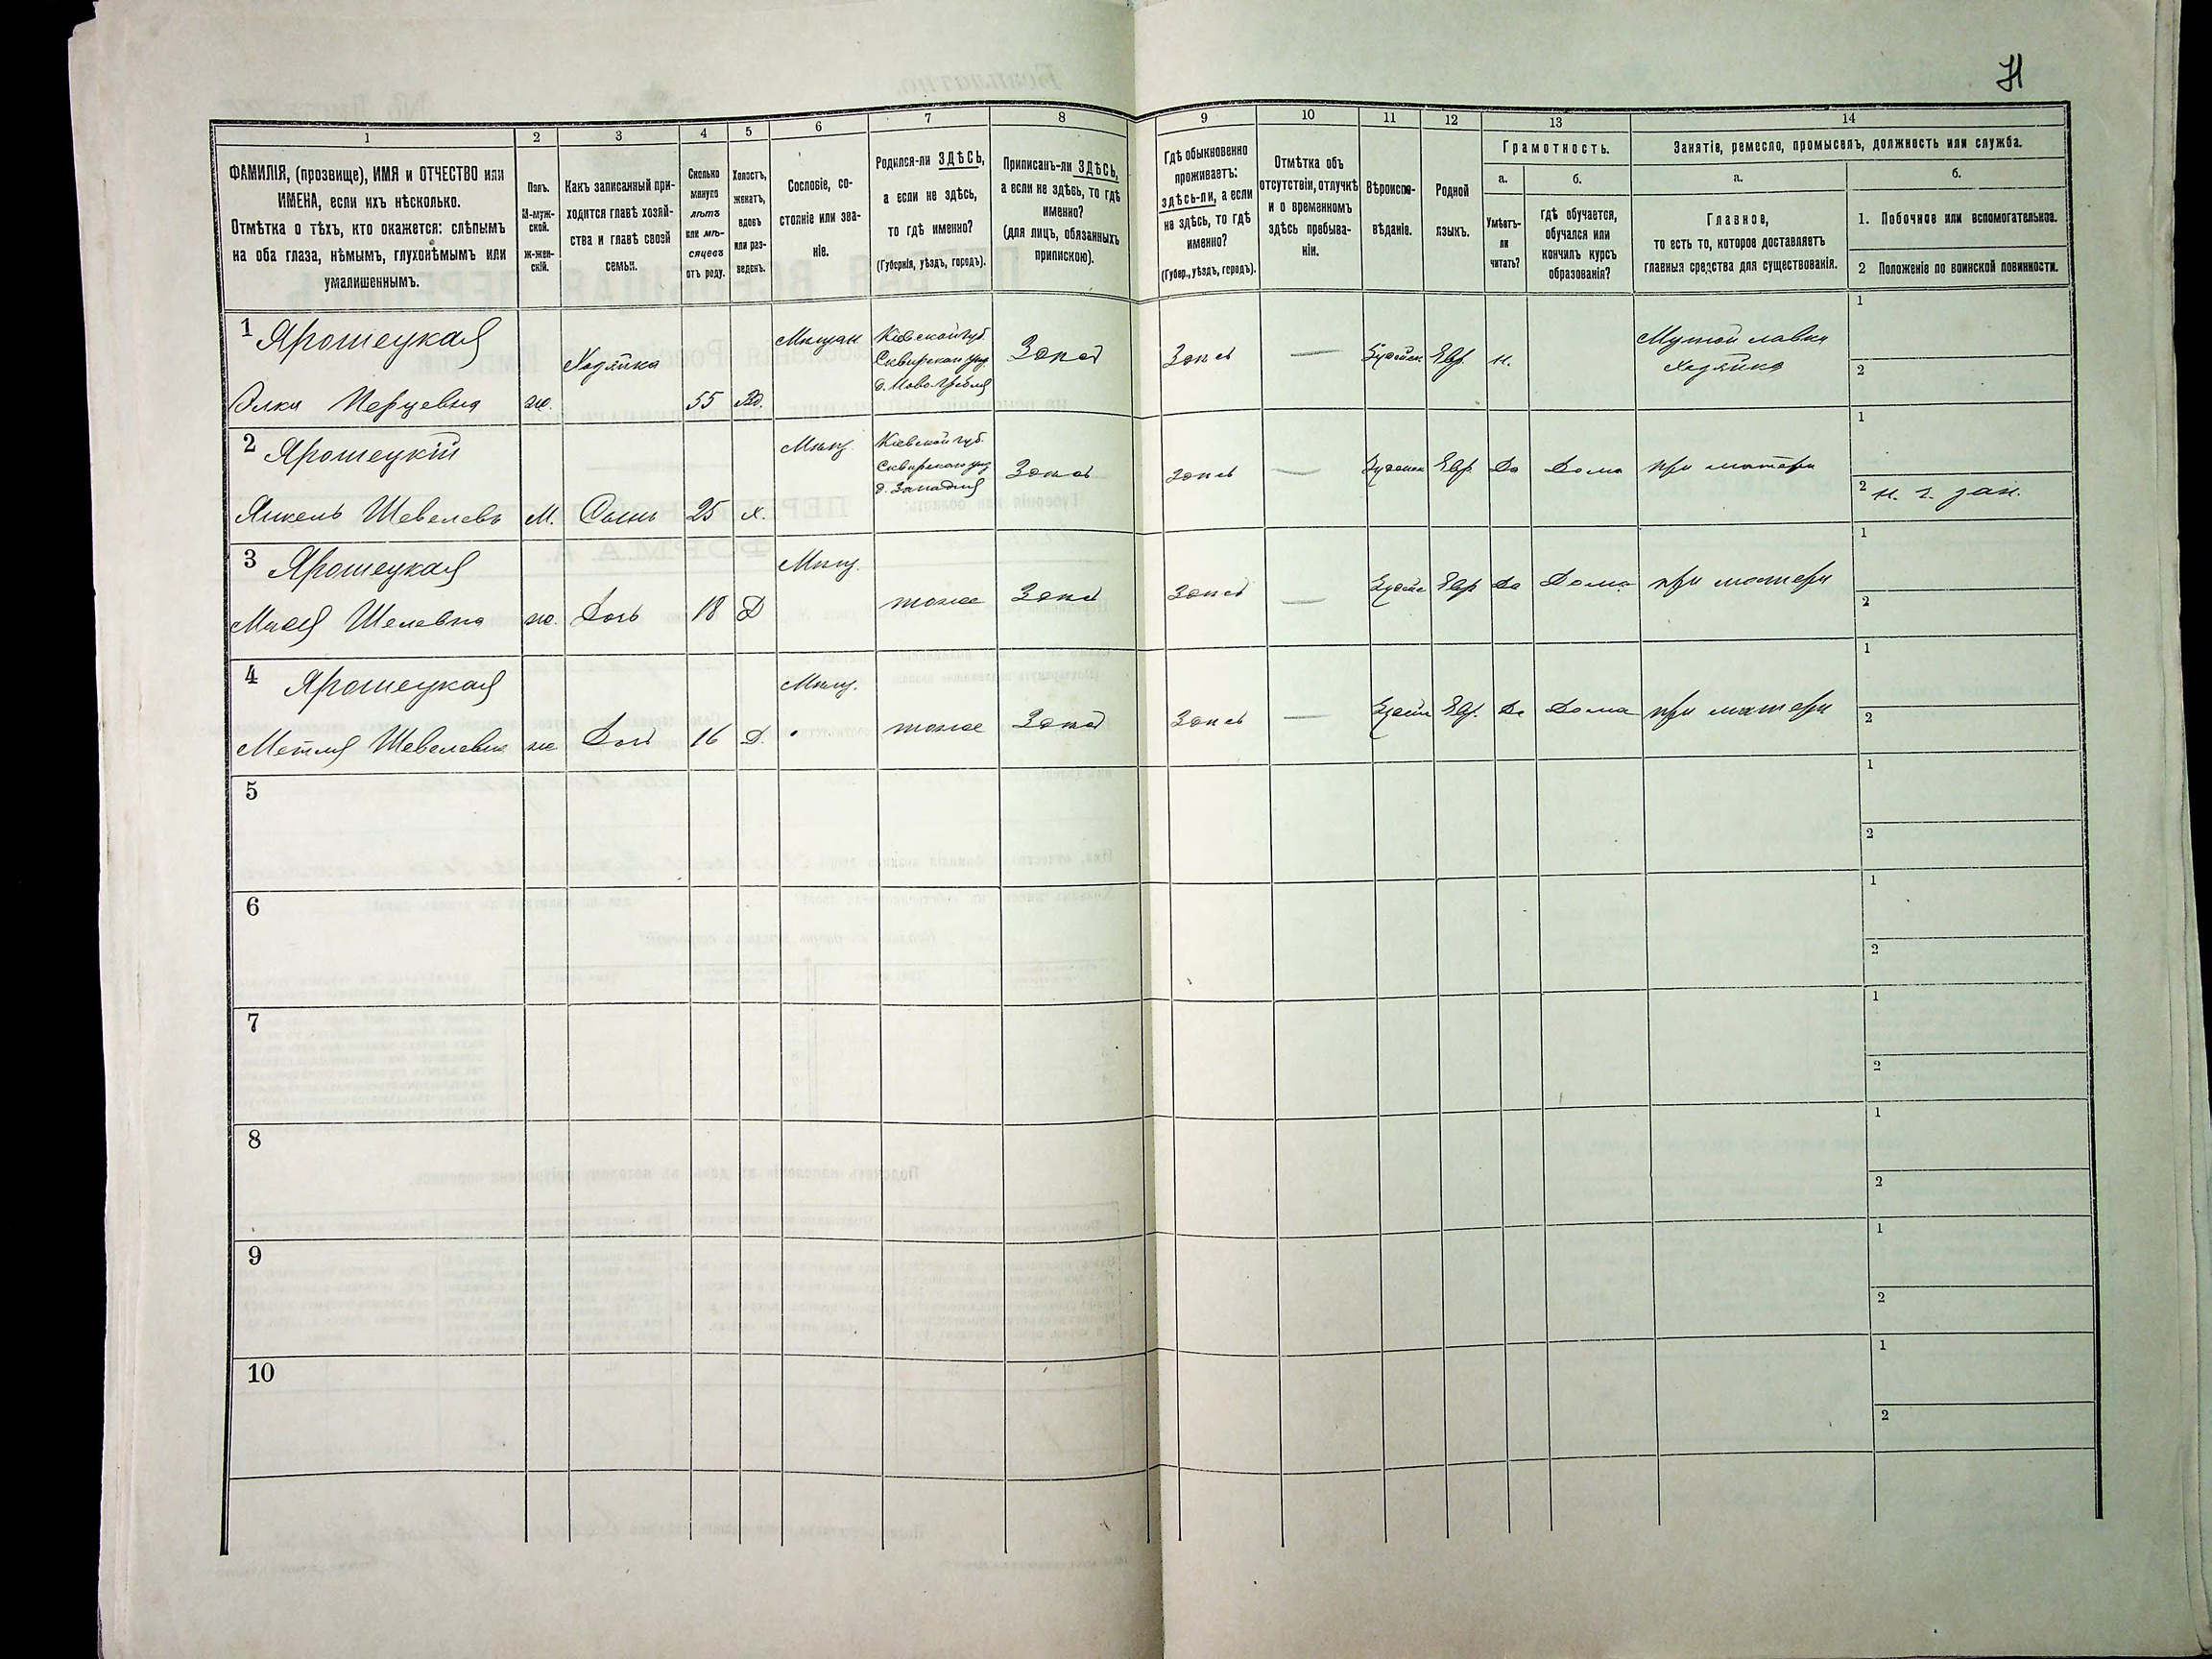 Н
1
2
3
4
5
6
7
8
9
10
11
12
13
14
ФАМИЛІЯ, (прозвище), ИМЯ и ОТЧЕСТВО или
ИМЕНА, если ихъ нѣсколько.
Отмѣтка о тѣхъ, кто окажется: слѣпымъ
на оба глаза, нѣмымъ, глухонѣмымъ или
умалишеннымъ.
Полъ.
М-муж-
ской.
ж-жен-
скій.
Какъ записанный при-
ходится главѣ хозяй-
ства и главѣ своей
семьи.
Сколько
минуло
лѣтъ
или мѣ-
сяцевъ
отъ роду.
Холостъ,
женатъ,
вдовъ
или раз-
веденъ.
Сословіе, со-
стояніе или зва-
ніе.
Родился-ли ЗДѢСЬ,
а если не здѣсь,
то гдѣ именно?
(Губернія, уѣздъ, городъ).
Приписанъ-ли ЗДѢСЬ,
а если не здѣсь, то гдѣ
именно?
(для лицъ, обязанныхъ
припискою).
Гдѣ обыкновенно
проживаетъ:
здѣсь-ли, а если
не здѣсь, то гдѣ
именно?
(Губер., уѣздъ, городъ).
Отмѣтка объ
отсутствіи, отлучкѣ
и о временномъ
здѣсь пребыва-
ніи.
Вѣроиспо-
вѣданіе.
Родной
языкъ.
Грамотность.
а.
Умѣетъ-
ли
читать?
б.
гдѣ обучается,
обучался или
кончилъ курсъ
образованія?
Занятіе, ремесло, промыселъ, должность или служба.
а.
Главное,
то есть то, которое доставляетъ
главныя средства для существованія.
б.
1. Побочное или вспомогательное.
2 Положеніе по воинской повинности.
1 Ярошецкая
Элка Перцевна
ж.
Хозяйка
55
Вд.
Мѣщан
Кіевской губ.
Сквирскаго уѣз.
Здѣсь
Здѣсь
—
Іудейск.
Евр.
н.
Мучной лавки
Хозяйка
1
2
2 Ярошецкій
Янкель Шевелевъ
М.
Сынъ
25
х.
Мѣщ.
Кіевской губ.
Сквирскаго уѣз
Здѣсь
Здѣсь
—
Іудейск
Евр.
Да
Дома
при матери
1
2
3 Ярошецкая
ж.
Дочь
18
Д
Мѣщ.
тоже
Здѣсь
Здѣсь
—
Іудейс
Евр
Да
Дома
при матери
1
2
4 Ярошецкая
Шевелевна
ж
Дочь
16
Д.
Мѣщ.
тоже
Здѣсь
Здѣсь
—
Іудейс
Евр.
Да
Дома
при матери
1
2
5
1
2
6
1
2
7
1
2
8
1
2
9
1
2
10
1
2